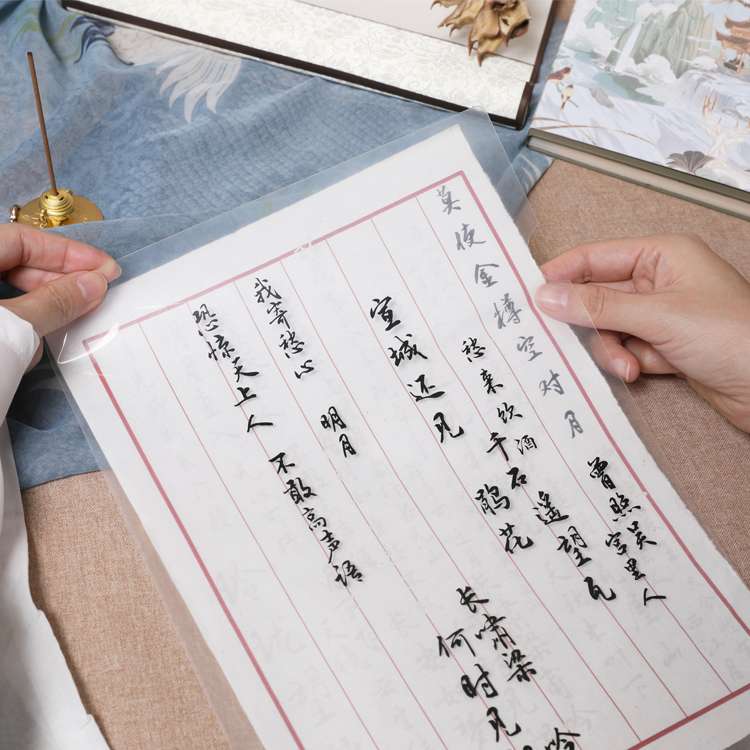 莫使金樽空对月
曾照吴宫里人
愁来饮酒千石
遥望瓦
宣城还见
鹃花
长啸梁
吟
何时见
我寄愁心
明月
恐惊天上人
不敢高声语